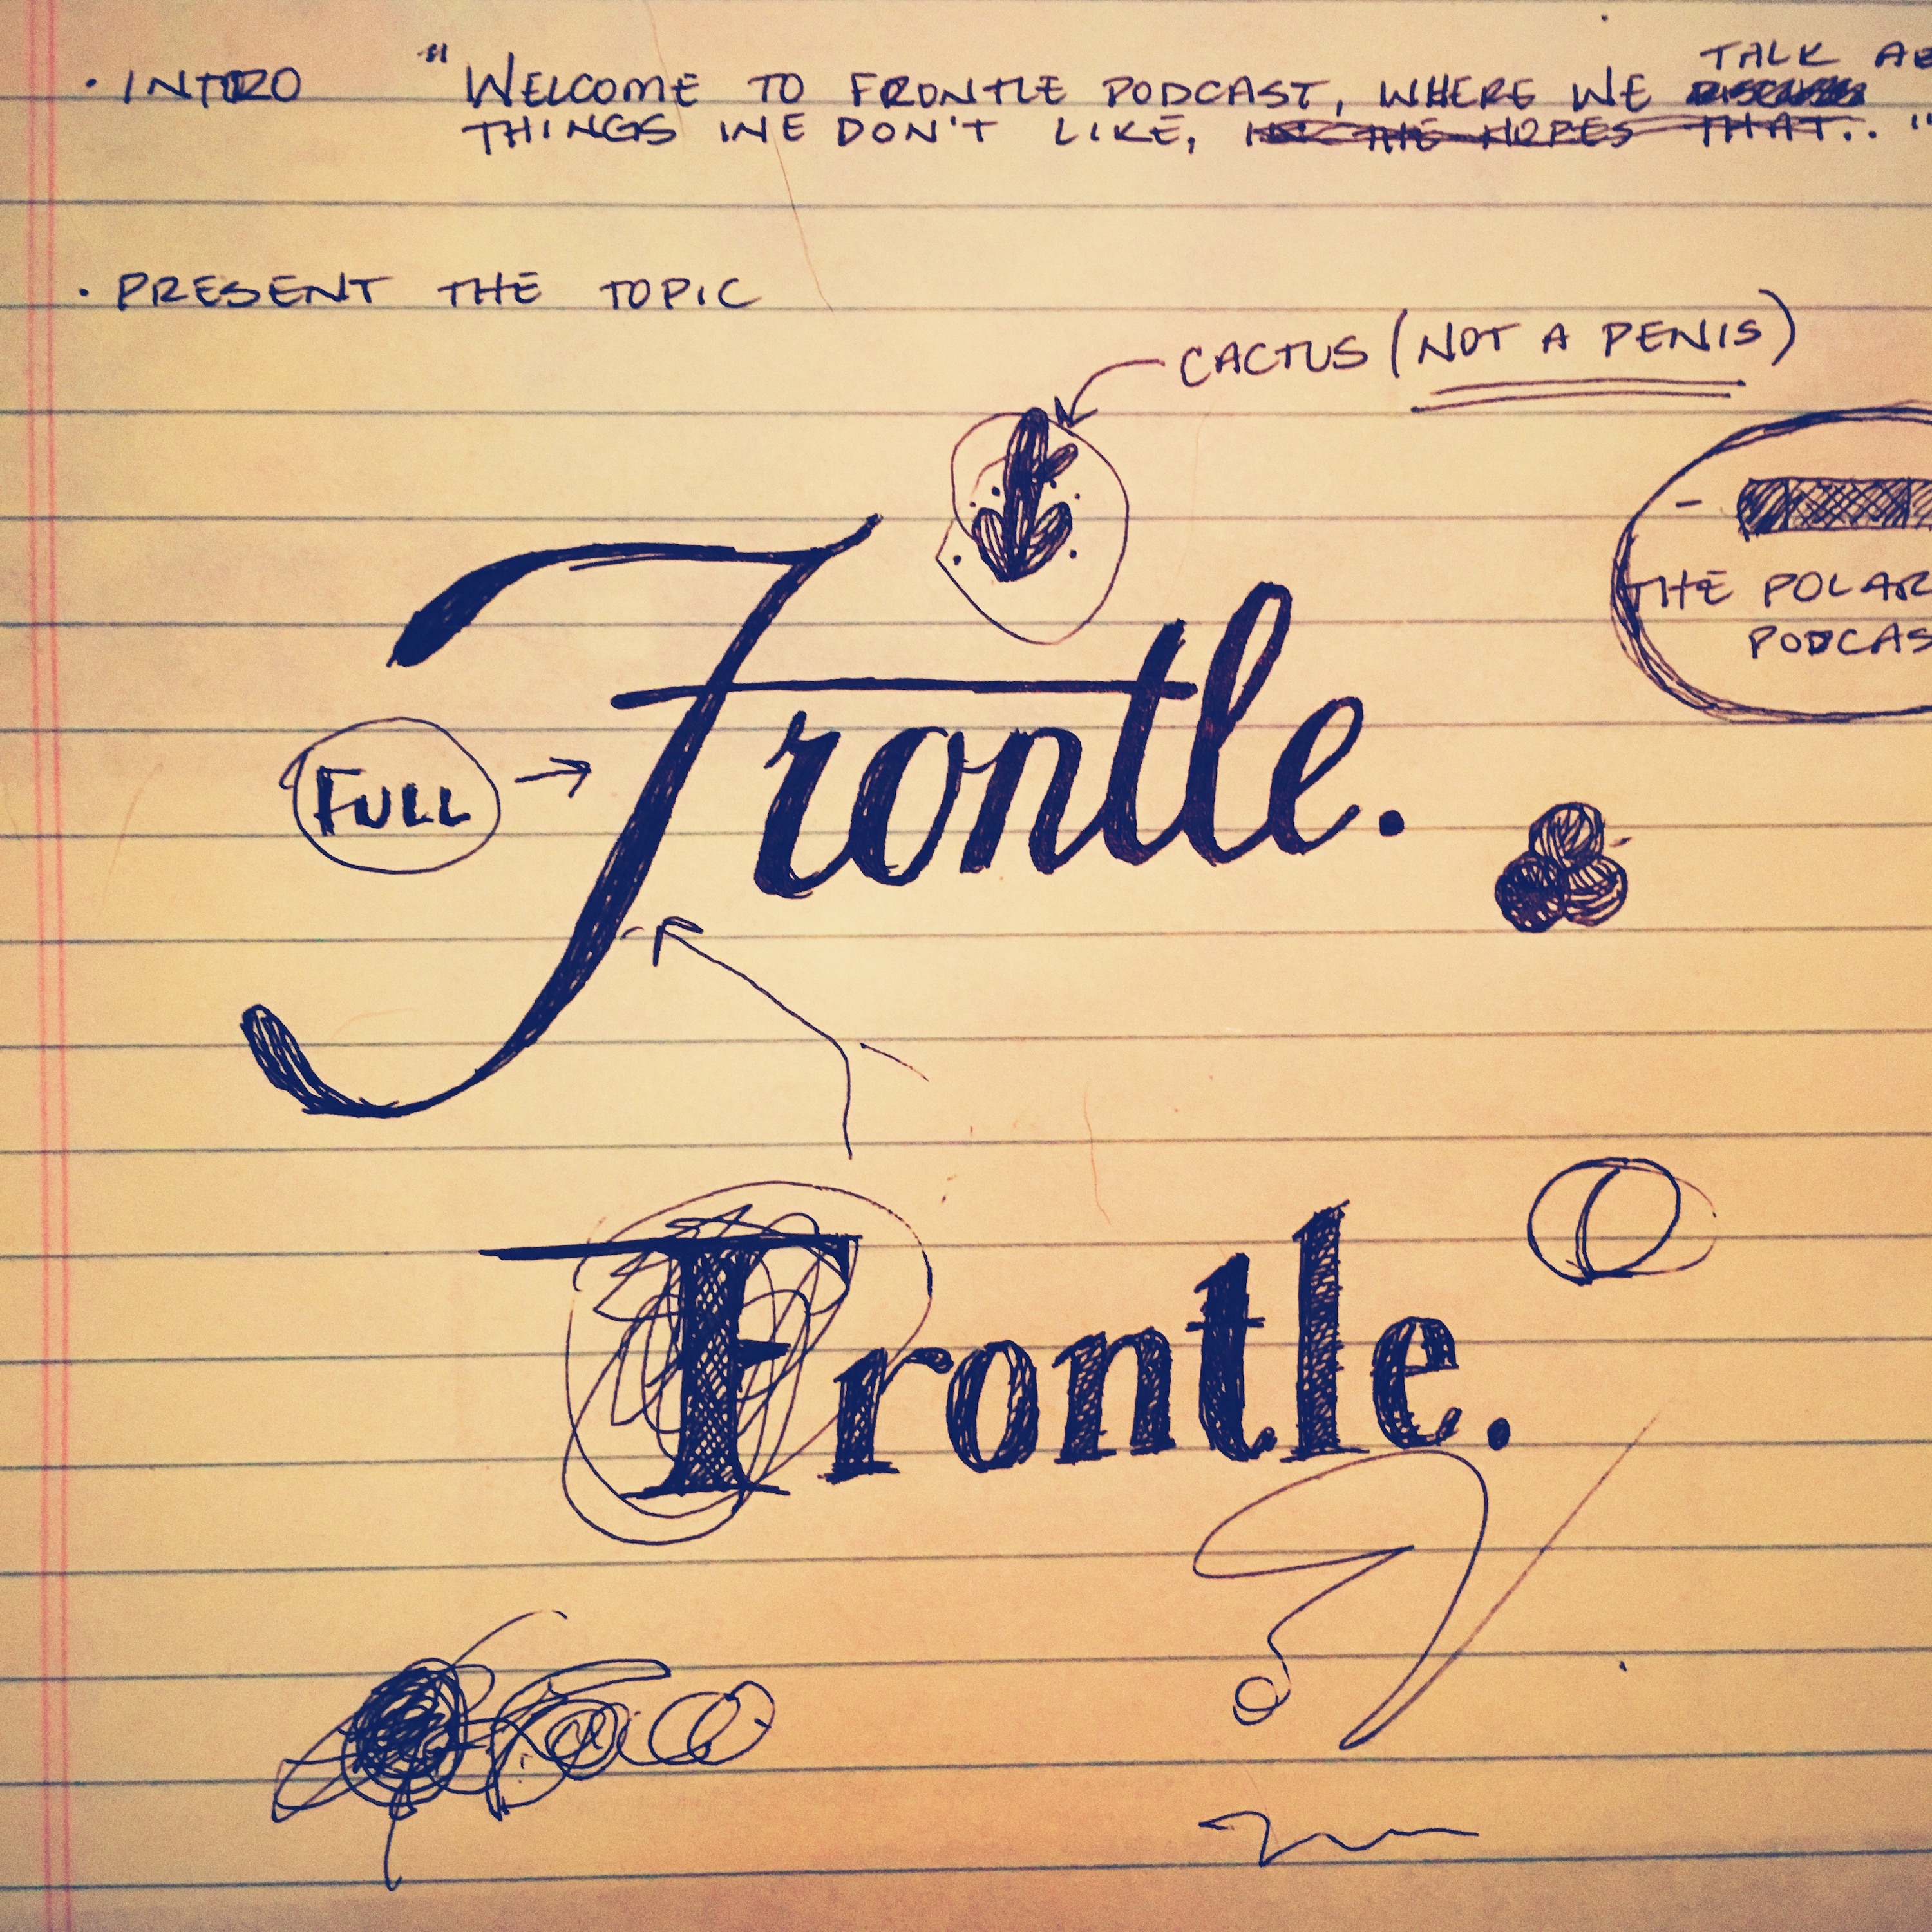 TALK AB
· INTRO "WELCOME TO FRONTLE PODCAST, WHERE WE DISCUSS
THINGS WE DON'T LIKE, IN THE HOPES THAT.. "
· PRESENT THE TOPIC
CACTUS (NOT A PENIS)
THE POLAR
PODCAS
Frontle.
FULL
Frontle.